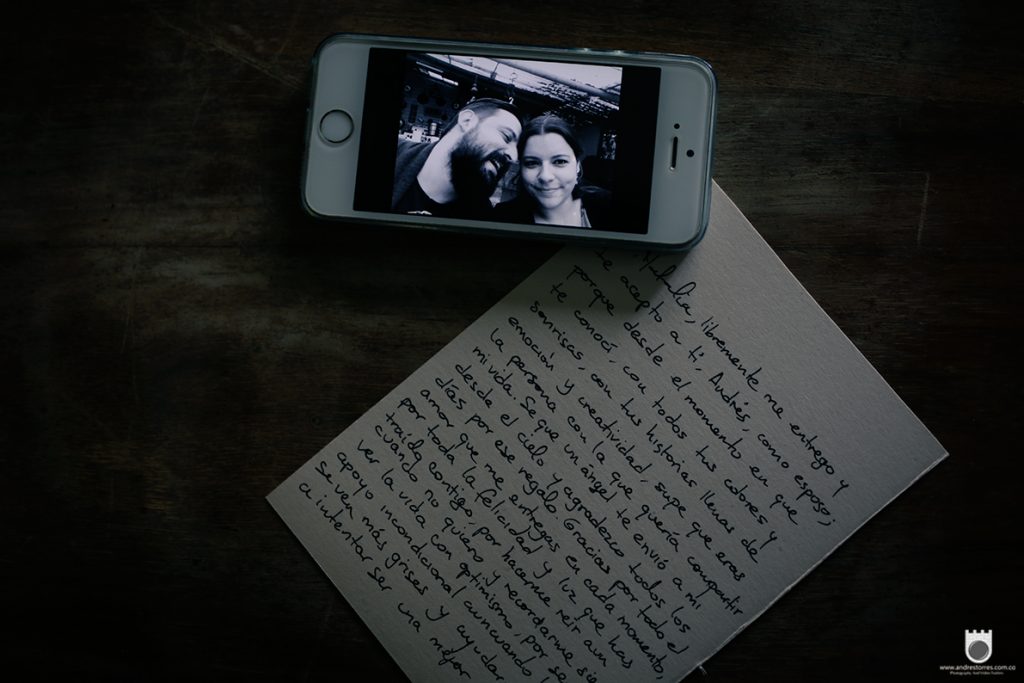 libremente me entrego y
te acepto a ti, Andrés, como esposo;
porque desde el momento en que
te conocí, con todos tus colores y
sonrisas, con tus historias llenas de
emoción y creatividad, supe que eras
la persona con la que quería compartir
mi vida. Se que un ángel te envió a mi
desde el cielo y agradezco todos los
días por ese regalo. Gracias por todo el
amor que me entregas en cada momento,
por toda la felicidad y luz que has
traído contigo, por hacerme reír aun
cuando no quiero y recordarme
ver la vida con optimismo, por
apoyo incondicional aun cuando
se ven más grises y ayudar
a intentar ser una mejor
www.andrestorres.com.co
Photography And Video Fusion